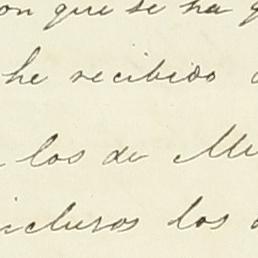 on que se ha g
he recibido
los de Me
inclusos los